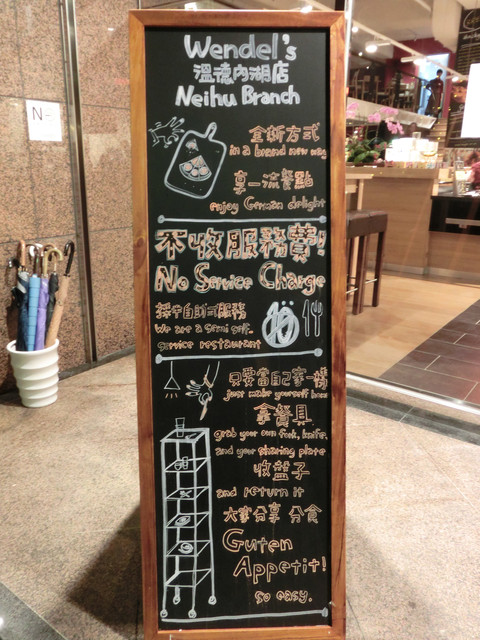 Wendel's
溫德內湖店
Neihu Branch
全新方式
in a brand new way
享一流餐點
enjoy German delight
不收服務費!
No Service Charge
採半自助式服務
We are a semi self-
service restaurant
只要當自己家一樣
just make yourself home
拿餐具
grab your own fork, knife,
and your sharing plate
收盤子
and return it
大家分享 分食
Guten
Appetit!
so easy.